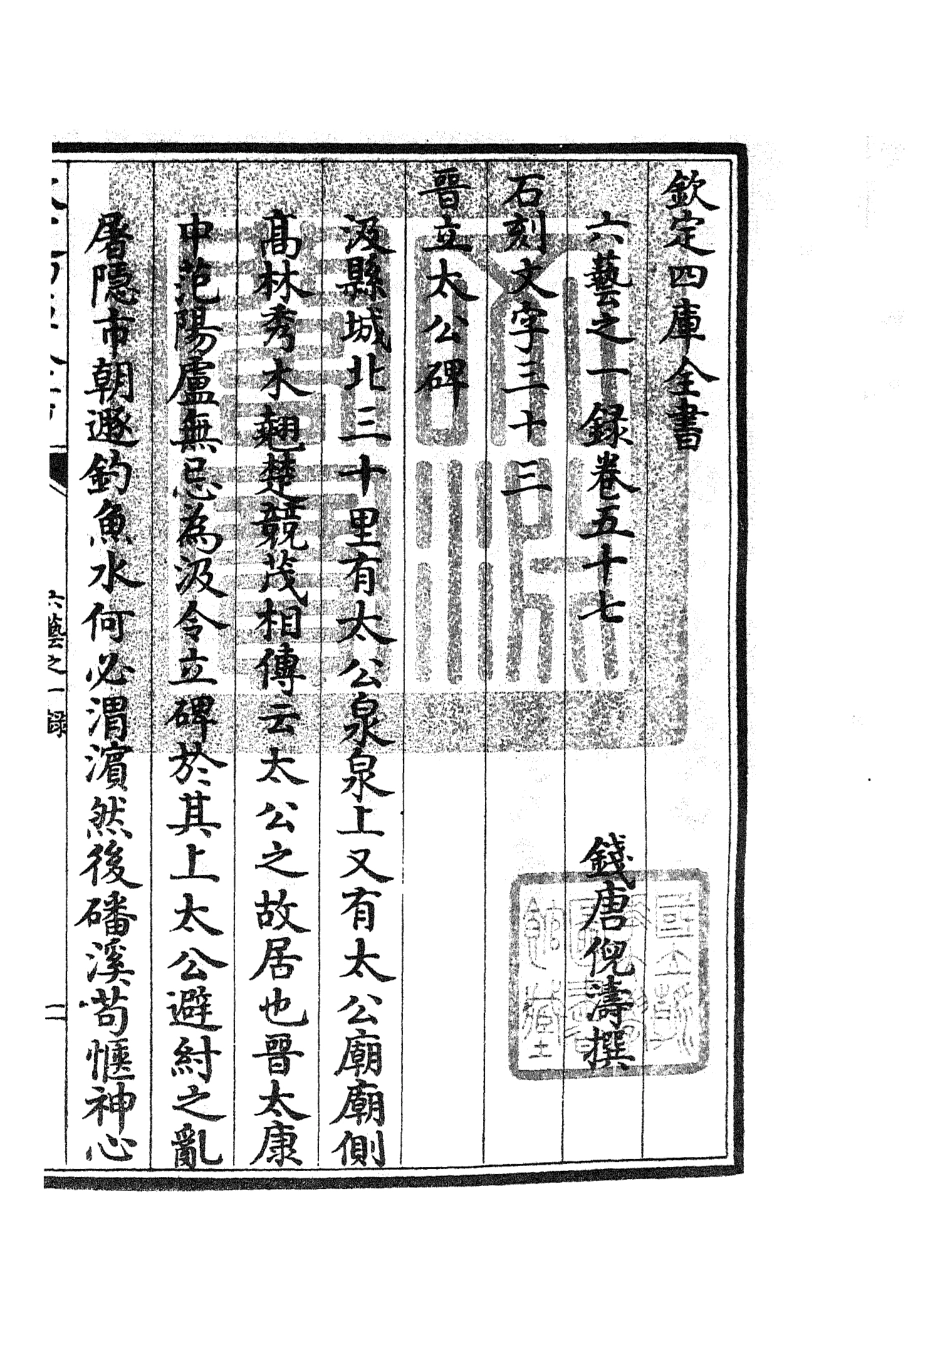 欽定四庫全書
六藝之一錄卷五十七
錢唐倪濤撰
石刻文字三十三
晉立太公碑
汲縣城北三十里有太公泉泉上又有太公廟廟側
髙林秀木翹楚競茂相傳云太公之故居也晉太康
中范陽盧無忌為汲令立碑於其上太公避紂之亂
屠隱市朝遯釣魚水何必渭濵然後磻溪苟愜神心
六藝之一録
一